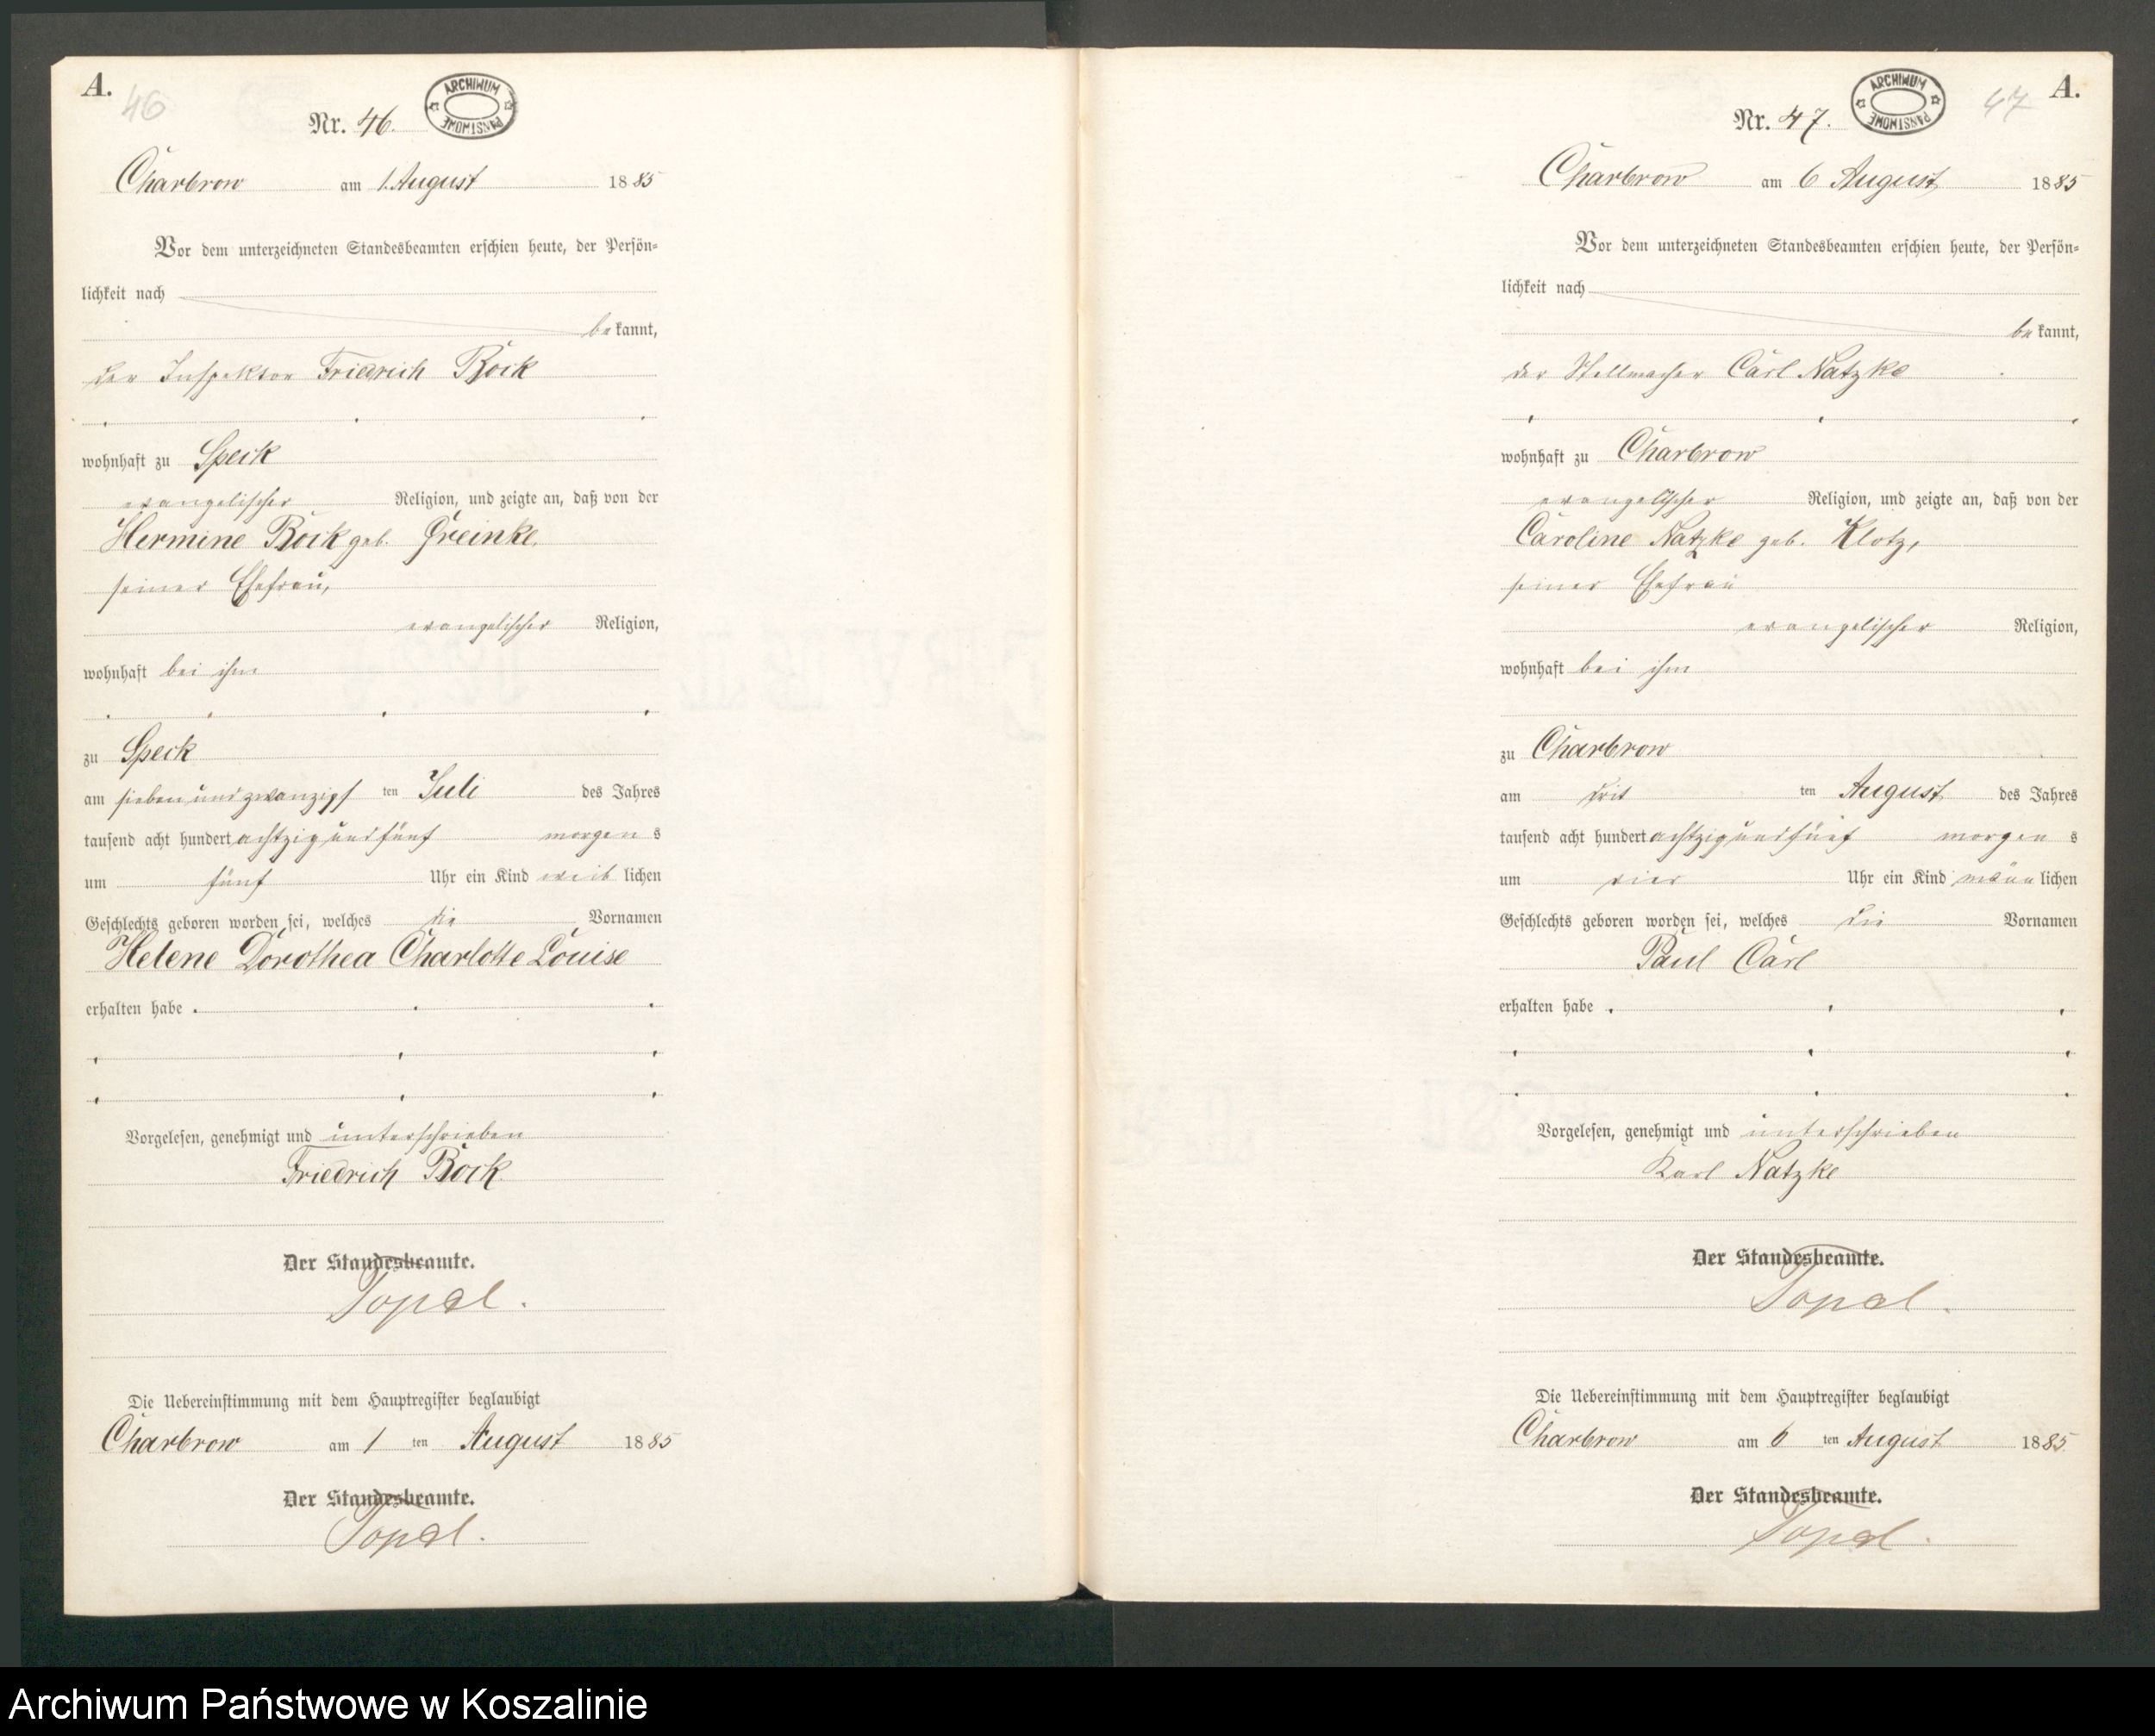 A.
46
Nr. 46.
ARCHIWUM PAŃSTWOWE
Charbrow am 1. August 1885
Vor dem unterzeichneten Standesbeamten erschien heute, der Persön-
lichkeit nach
bekannt,
der Inspektor Friedrich Bock
wohnhaft zu Speck
evangelischer Religion, und zeigte an, daß von der
Hermine Bock geb. Greinke,
seiner Ehefrau,
evangelischer Religion,
wohnhaft bei ihm
zu Speck
am siebenundzwanzigsten Juli des Jahres
tausend acht hundert achtzig und fünf morgens
um fünf Uhr ein Kind weiblichen
Geschlechts geboren worden sei, welches die Vornamen
Helene Dorothea Charlotte Louise
erhalten habe.
Vorgelesen, genehmigt und unterschrieben
Friedrich Bock
Der Standesbeamte.
Topel.
Die Uebereinstimmung mit dem Hauptregister beglaubigt
Charbrow am 1 ten August 1885
Der Standesbeamte.
Topel.
A.
47
Nr. 47.
ARCHIWUM PAŃSTWOWE
Charbrow am 6 August 1885
Vor dem unterzeichneten Standesbeamten erschien heute, der Persön-
lichkeit nach
bekannt,
der Stellmacher Carl Natzke
wohnhaft zu Charbrow
evangelischer Religion, und zeigte an, daß von der
Caroline Natzke geb. Klotz,
seiner Ehefrau
evangelischer Religion,
wohnhaft bei ihm
zu Charbrow
am drit ten August des Jahres
tausend acht hundert achtzig und fünf morgens
um vier Uhr ein Kind männlichen
Geschlechts geboren worden sei, welches die Vornamen
Paul Carl
erhalten habe.
Vorgelesen, genehmigt und unterschrieben
Karl Natzke
Der Standesbeamte.
Topel.
Die Uebereinstimmung mit dem Hauptregister beglaubigt
Charbrow am 6 ten August 1885.
Der Standesbeamte.
Topel.
Archiwum Państwowe w Koszalinie